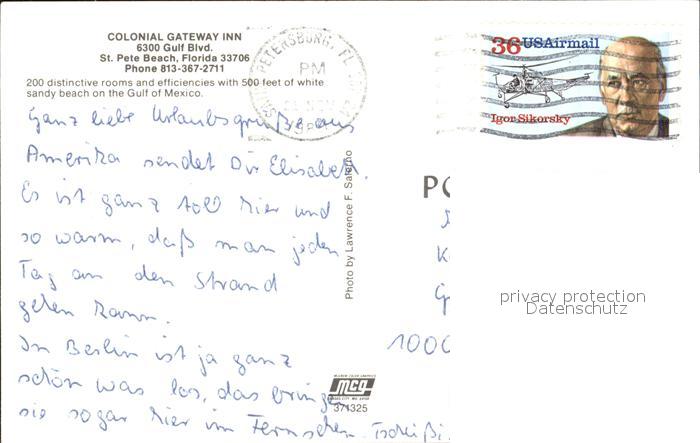 COLONIAL GATEWAY INN
6300 Gulf Blvd.
St. Pete Beach, Florida 33706
Phone 813-367-2711
200 distinctive rooms and efficiencies with 500 feet of white
sandy beach on the Gulf of Mexico.
PETERSBURG, FL
PM
36 USAirmail
Igor Sikorsky
Ganz liebe Urlaubsgrüße aus
Amerika sendet Dir Elisabeth.
Es ist ganz toll hier und
so warm, daß man jeden
Tag an den Strand
gehen kann.
In Berlin ist ja ganz
schön was los, das bringen
sie sogar hier im Fernsehen.
Photo by Lawrence F. Salerno
PO
1000
privacy protection
Datenschutz
mcg
371325